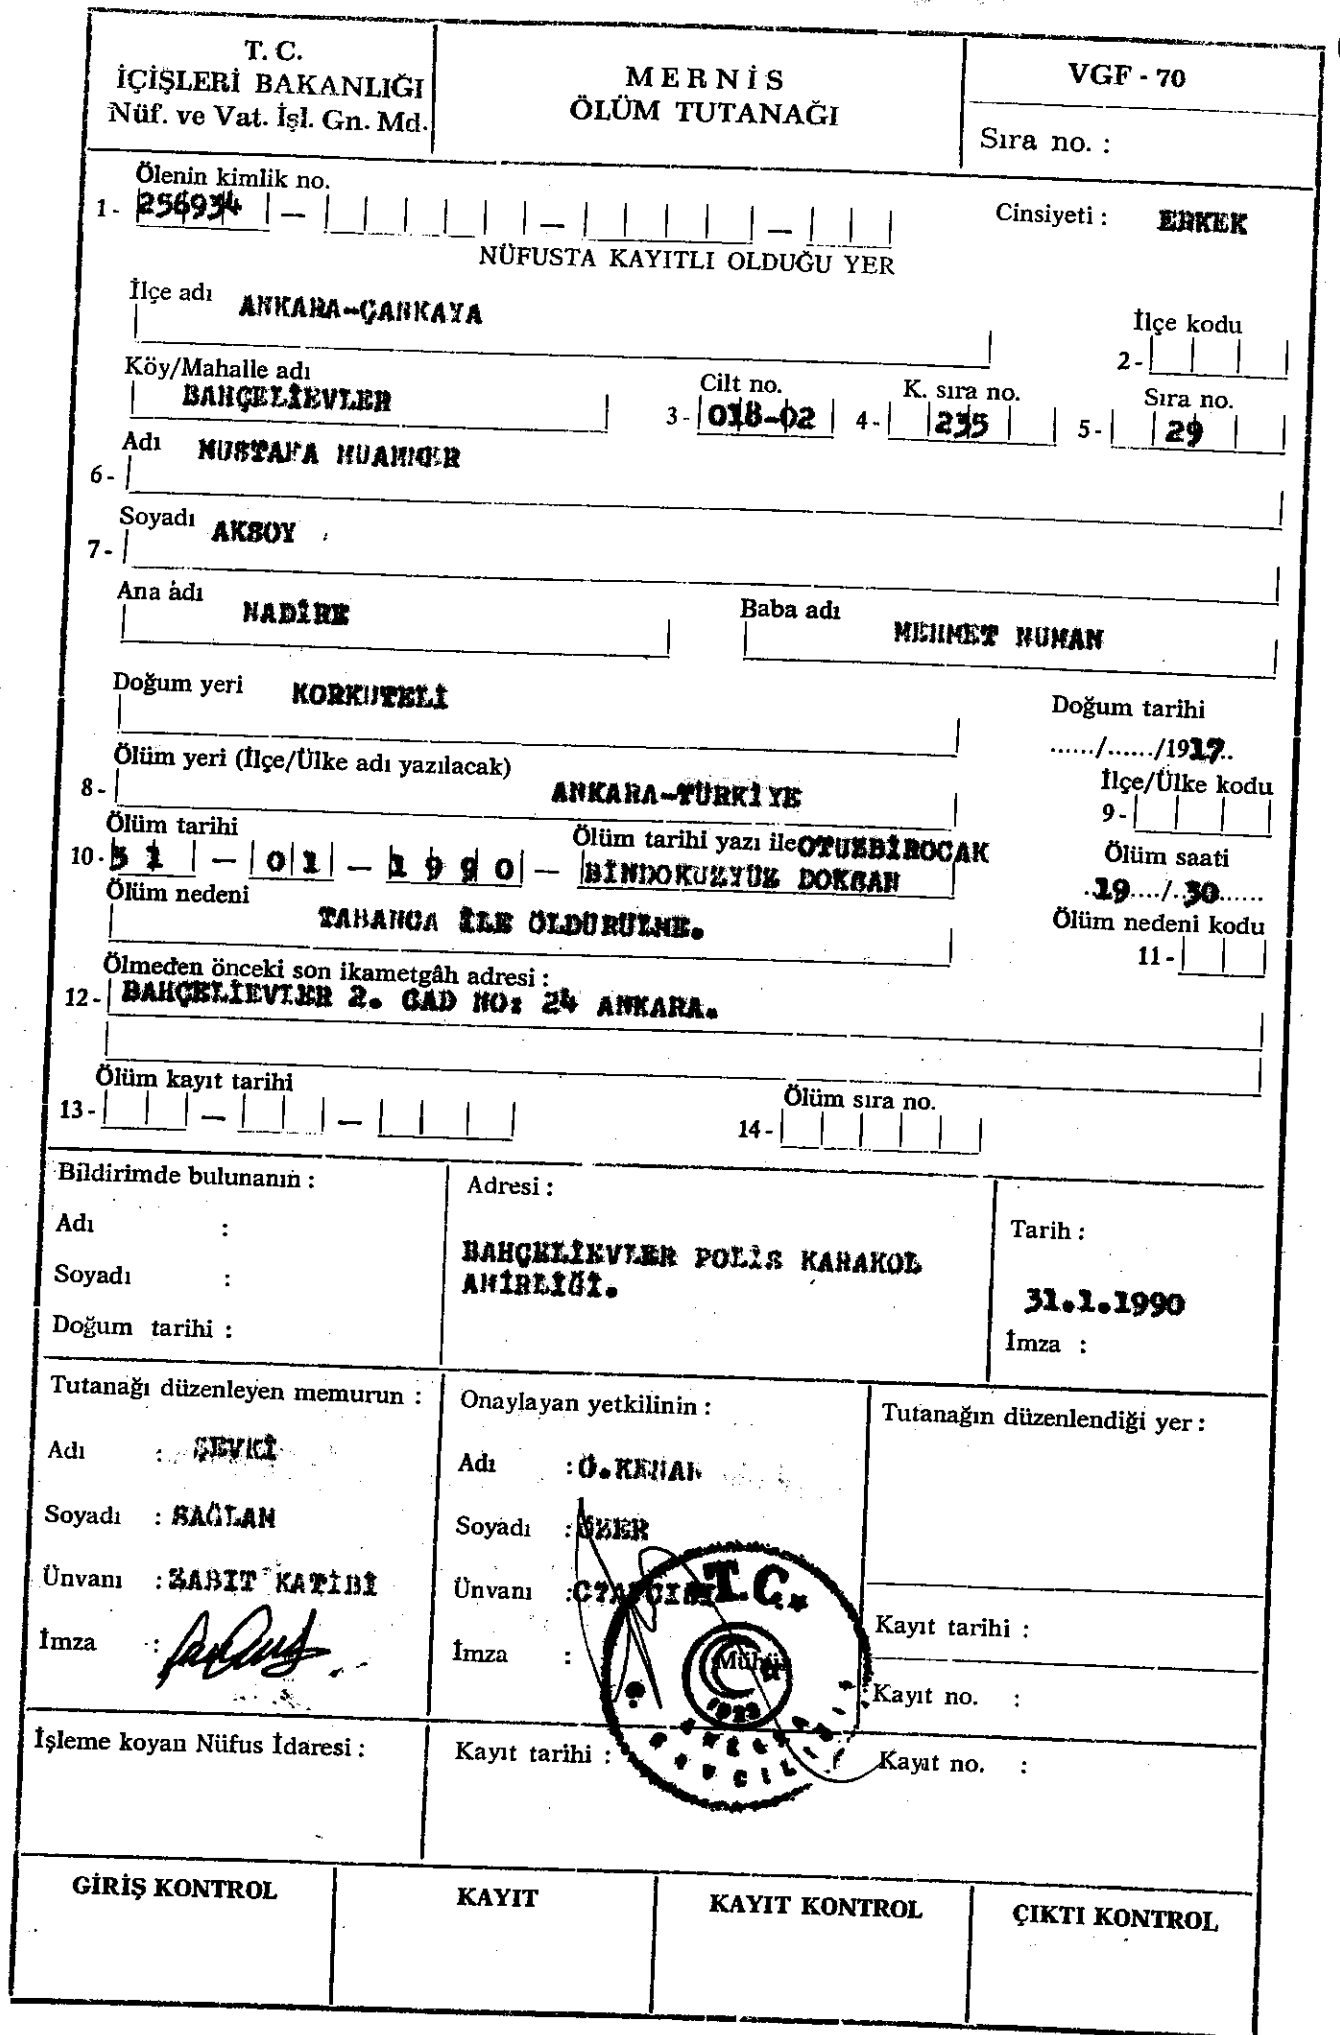 T. C.
İÇİŞLERİ BAKANLIĞI
Nüf. ve Vat. İşl. Gn. Md.
MERNİS
ÖLÜM TUTANAĞI
VGF - 70
Sıra no. :
Ölenin kimlik no.
1- 256934
Cinsiyeti : ERKEK
NÜFUSTA KAYITLI OLDUĞU YER
İlçe adı ANKARA-ÇANKAYA
İlçe kodu
2-
Köy/Mahalle adı
BAHÇELİEVLER
Cilt no.
3- 018-02
K. sıra no.
4- 235
Sıra no.
5- 29
Adı MUSTAFA MUAMMER
6-
Soyadı AKSOY
7-
Ana adı NADİRE
Baba adı MEHMET NUMAN
Doğum yeri KORKUTELİ
Doğum tarihi
....../....../1917..
Ölüm yeri (İlçe/Ülke adı yazılacak)
8- ANKARA-TÜRKİYE
İlçe/Ülke kodu
9-
Ölüm tarihi
10- 31 — 01 — 1990 —
Ölüm tarihi yazı ile OTUZBİROCAK
BİNDOKUZYÜZ DOKSAN
Ölüm saati
.19..../.30......
Ölüm nedeni
TABANCA İLE ÖLDÜRÜLME.
Ölüm nedeni kodu
11-
Ölmeden önceki son ikametgâh adresi :
12- BAHÇELİEVLER 2. CAD NO: 24 ANKARA.
Ölüm kayıt tarihi
13-
Ölüm sıra no.
14-
Bildirimde bulunanın :
Adı :
Soyadı :
Doğum tarihi :
Adresi :
BAHÇELİEVLER POLİS KARAKOL
AMİRLİĞİ.
Tarih :
31.1.1990
İmza :
Tutanağı düzenleyen memurun :
Adı : ŞEVKİ
Soyadı : SAĞLAM
Ünvanı : ZABIT KATİBİ
İmza :
Onaylayan yetkilinin :
Adı : Ö.KENAN
Soyadı : ÖZER
Ünvanı :
İmza :
T.C.
Mühür
1923
Tutanağın düzenlendiği yer :
Kayıt tarihi :
Kayıt no. :
İşleme koyan Nüfus İdaresi :
Kayıt tarihi :
Kayıt no. :
GİRİŞ KONTROL
KAYIT
KAYIT KONTROL
ÇIKTI KONTROL